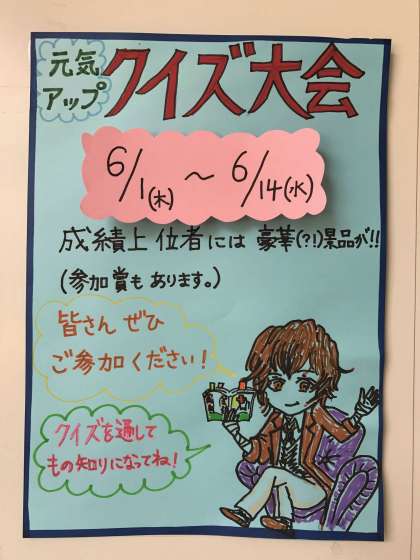 元気
アップ
クイズ大会
6/1(木) ～ 6/14(水)
成績上位者には 豪華(?!)景品が!!
(参加賞も あります。)
皆さん ぜひ
ご参加ください!
クイズを通して
もの知りになってね!